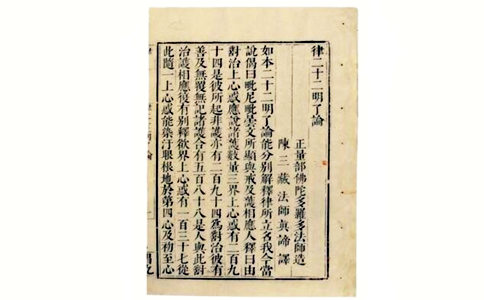 律二十二明了論
正量部佛陀多羅多法師造
陳三藏法師真諦譯
如本二十二明了論能分別解釋律所立名我今當
說偈曰毗尼毗曇文所顯與戒及護相應人釋曰由
對治上心惑應說諸護數量三界上心惑有二百九
十四是彼所起非護亦有二百九十四為對治彼有
善及無覆無記諸護合有五百八十八是人與此對
治護相應復有別釋欲界上心惑有一百三十七從
此隨一上心惑能染汙眼根地於第四心及初至心